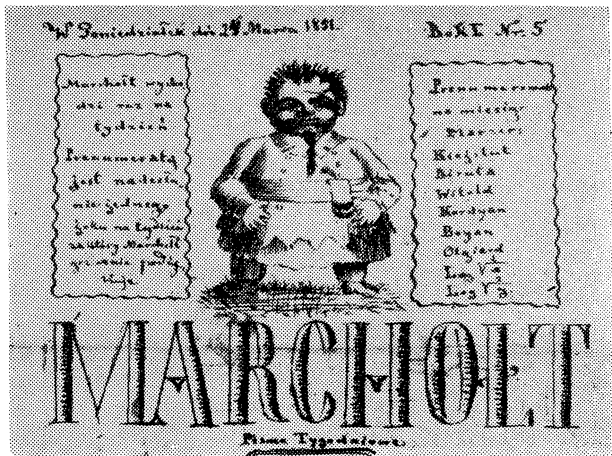 W Poniedziałek dn 24 Marca 1851.
Rok I Nr. 5
Marchołt wycho
dzi raz na
tydzień
Prenumeratą
jest nadesła
nie jednego
na tydzień
za który Marchołt
Prenumerowa
na miesiąc
Marzec:
Kiejstut
Biruta
Witold
Kordyan
Boyan
Olgierd
Log
Log
MARCHOŁT
Pismo Tygodniowe.